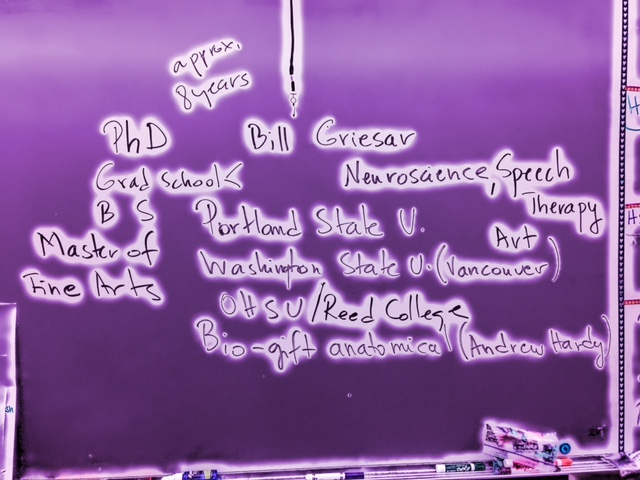 approx.
8 years
PhD Bill Griesar
Grad school< Neuroscience, Speech
Therapy
B S Portland State U.
Art
Master of
Fine Arts Washington State U. (Vancouver)
OHSU/Reed College
Bio-gift anatomical (Andrew Hardy)